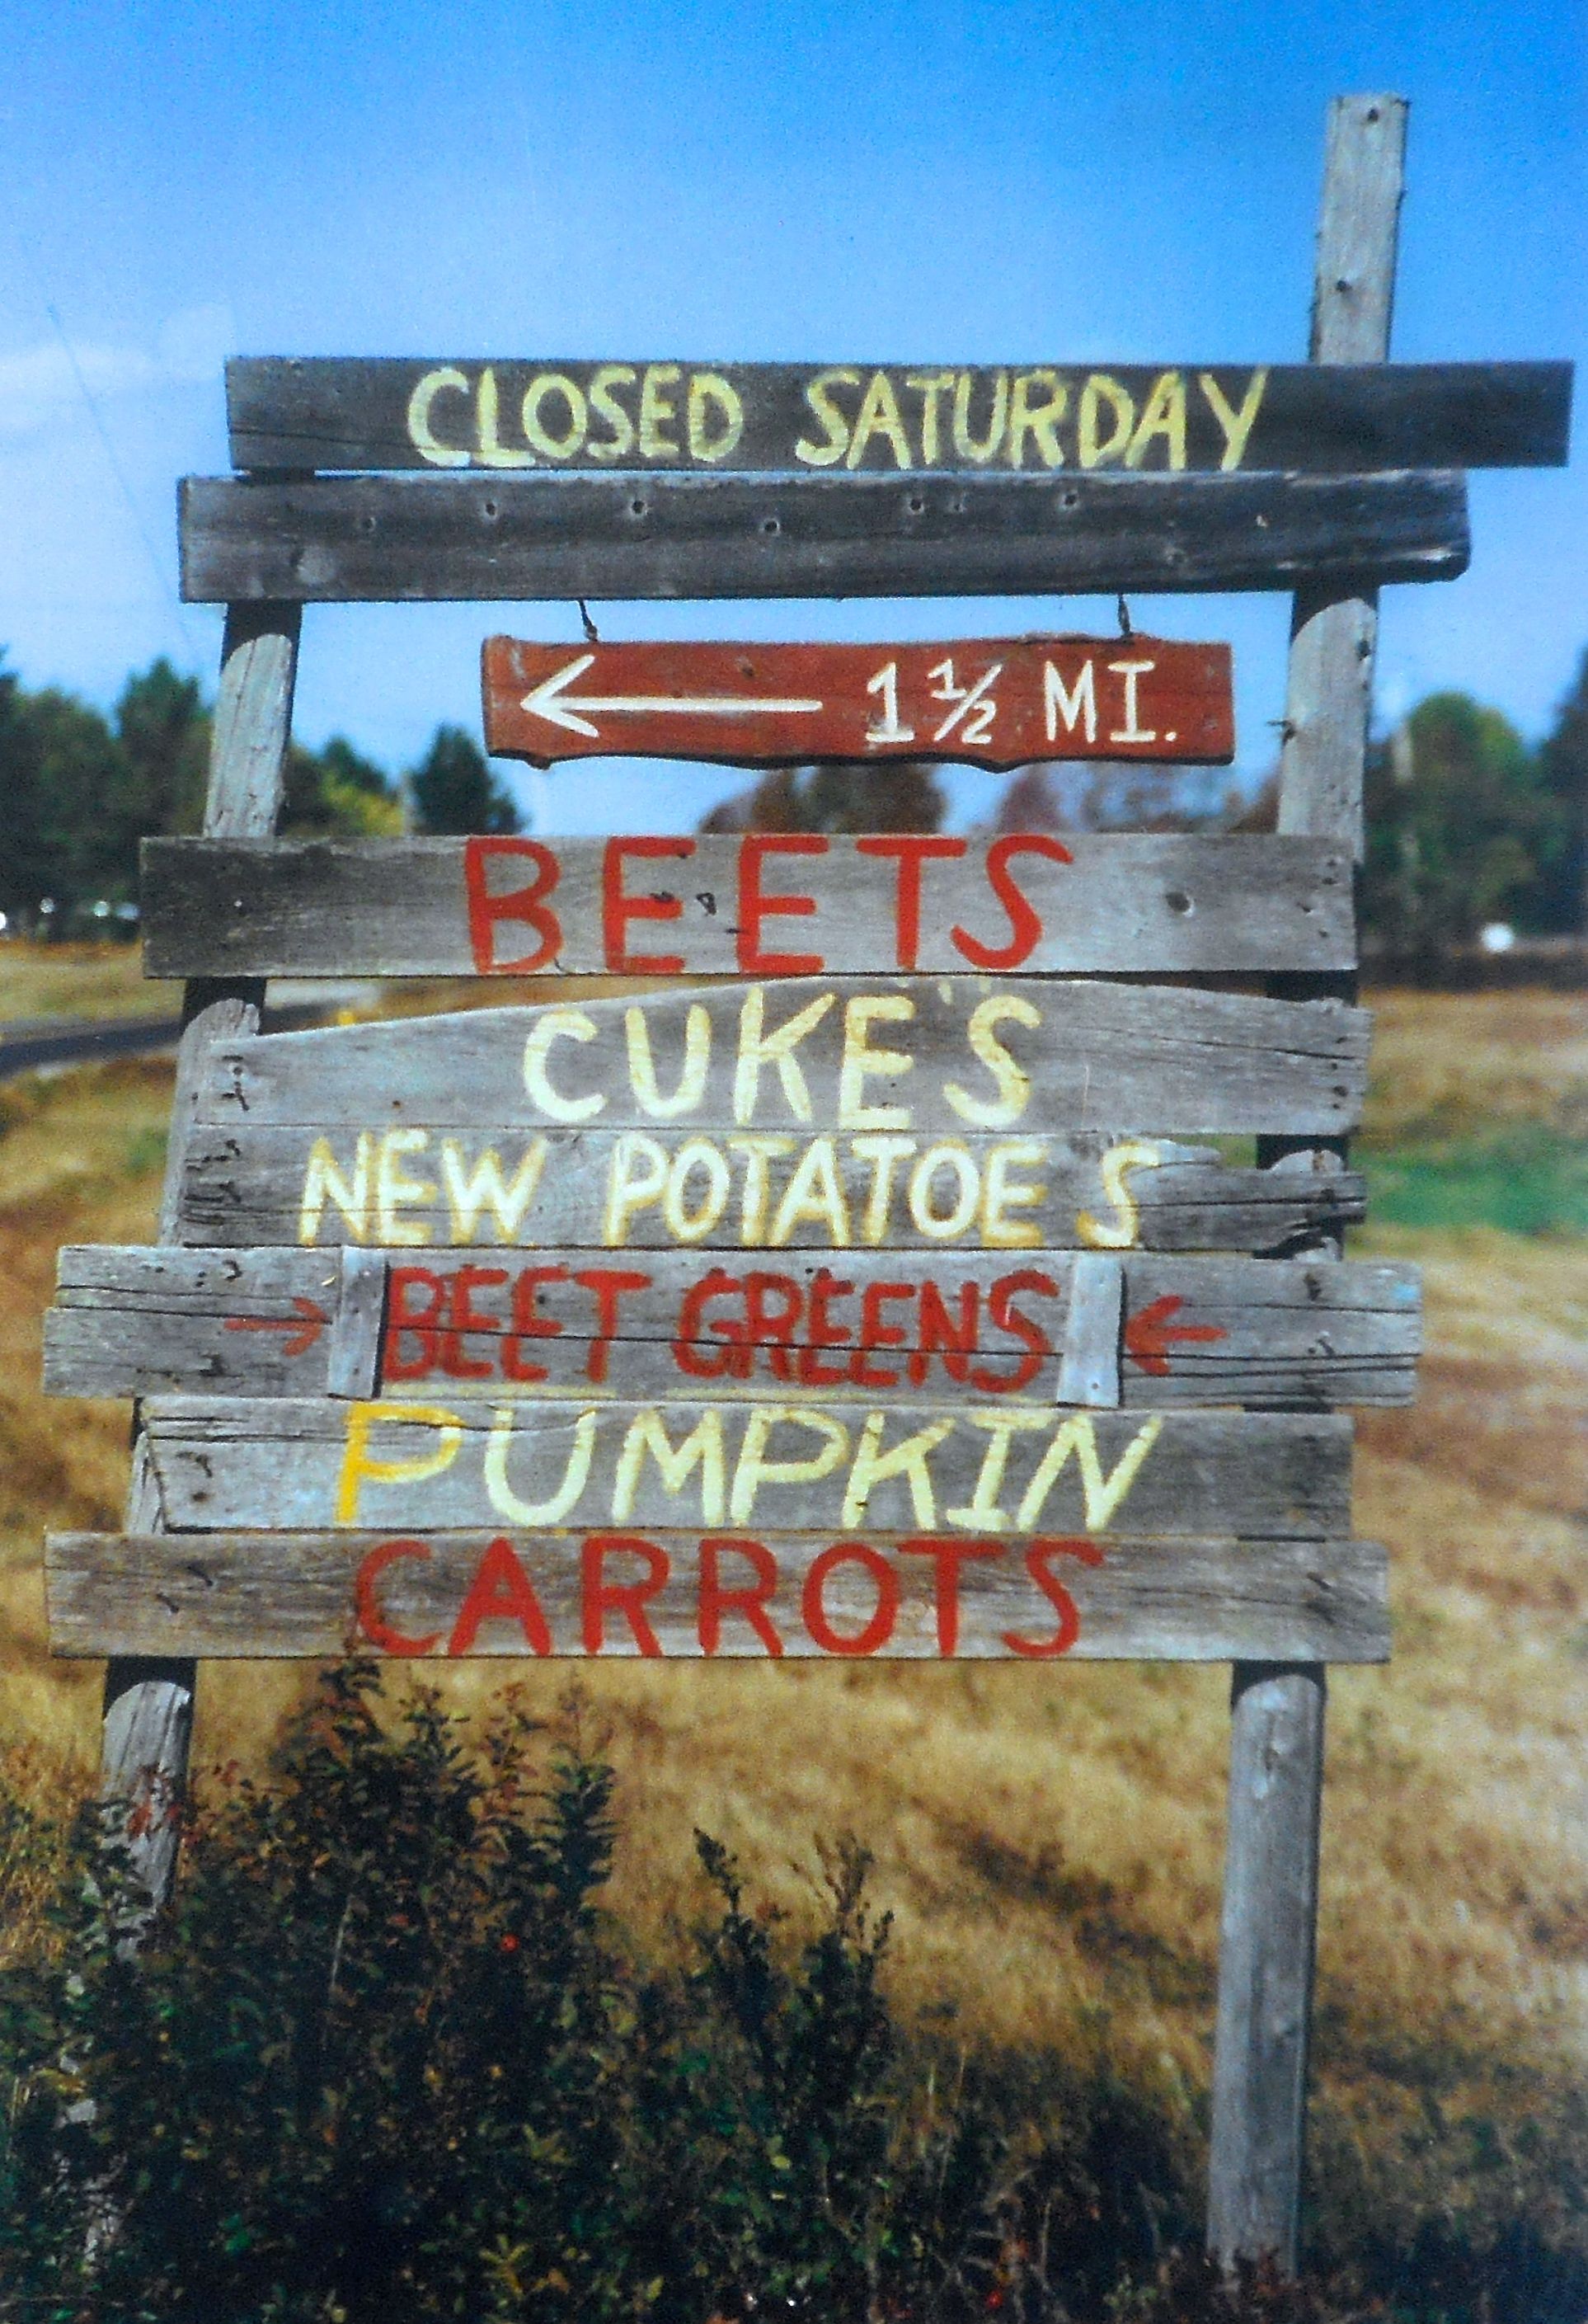 CLOSED SATURDAY
← 1 1/2 MI.
BEETS
CUKE'S
NEW POTATOES
→ BEET GREENS ←
PUMPKIN
CARROTS